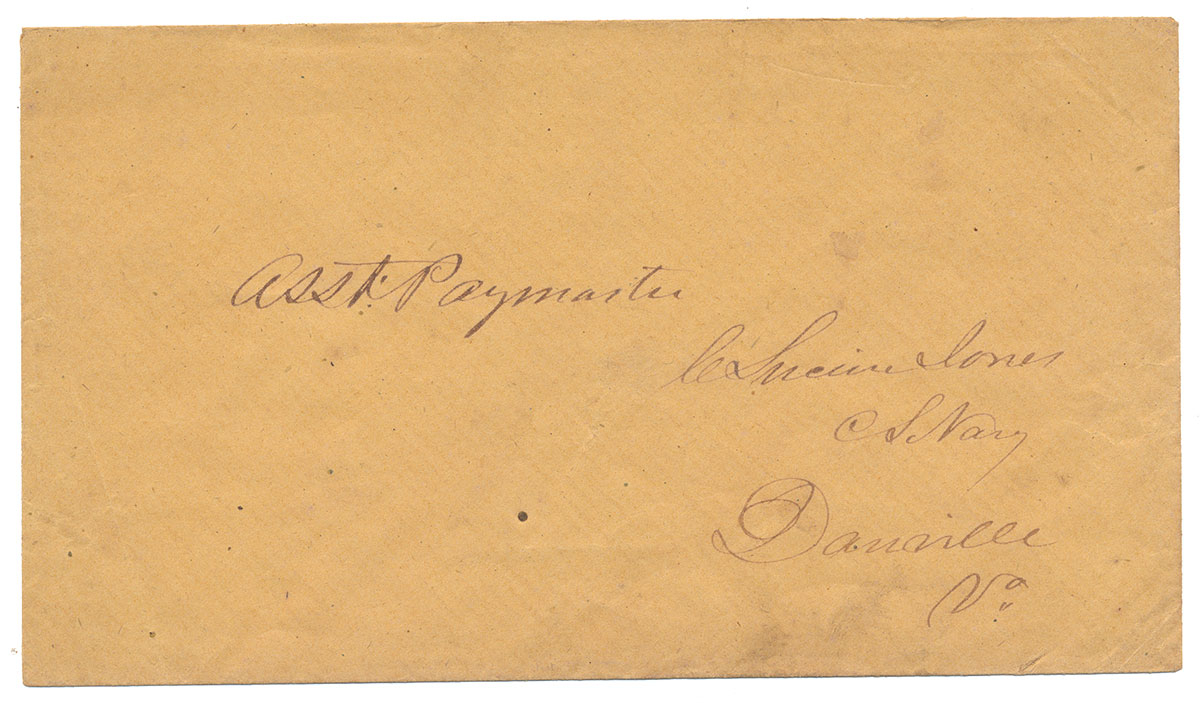 Asst. Paymaster
C Lucien Jones
C S Navy
Danville
Va